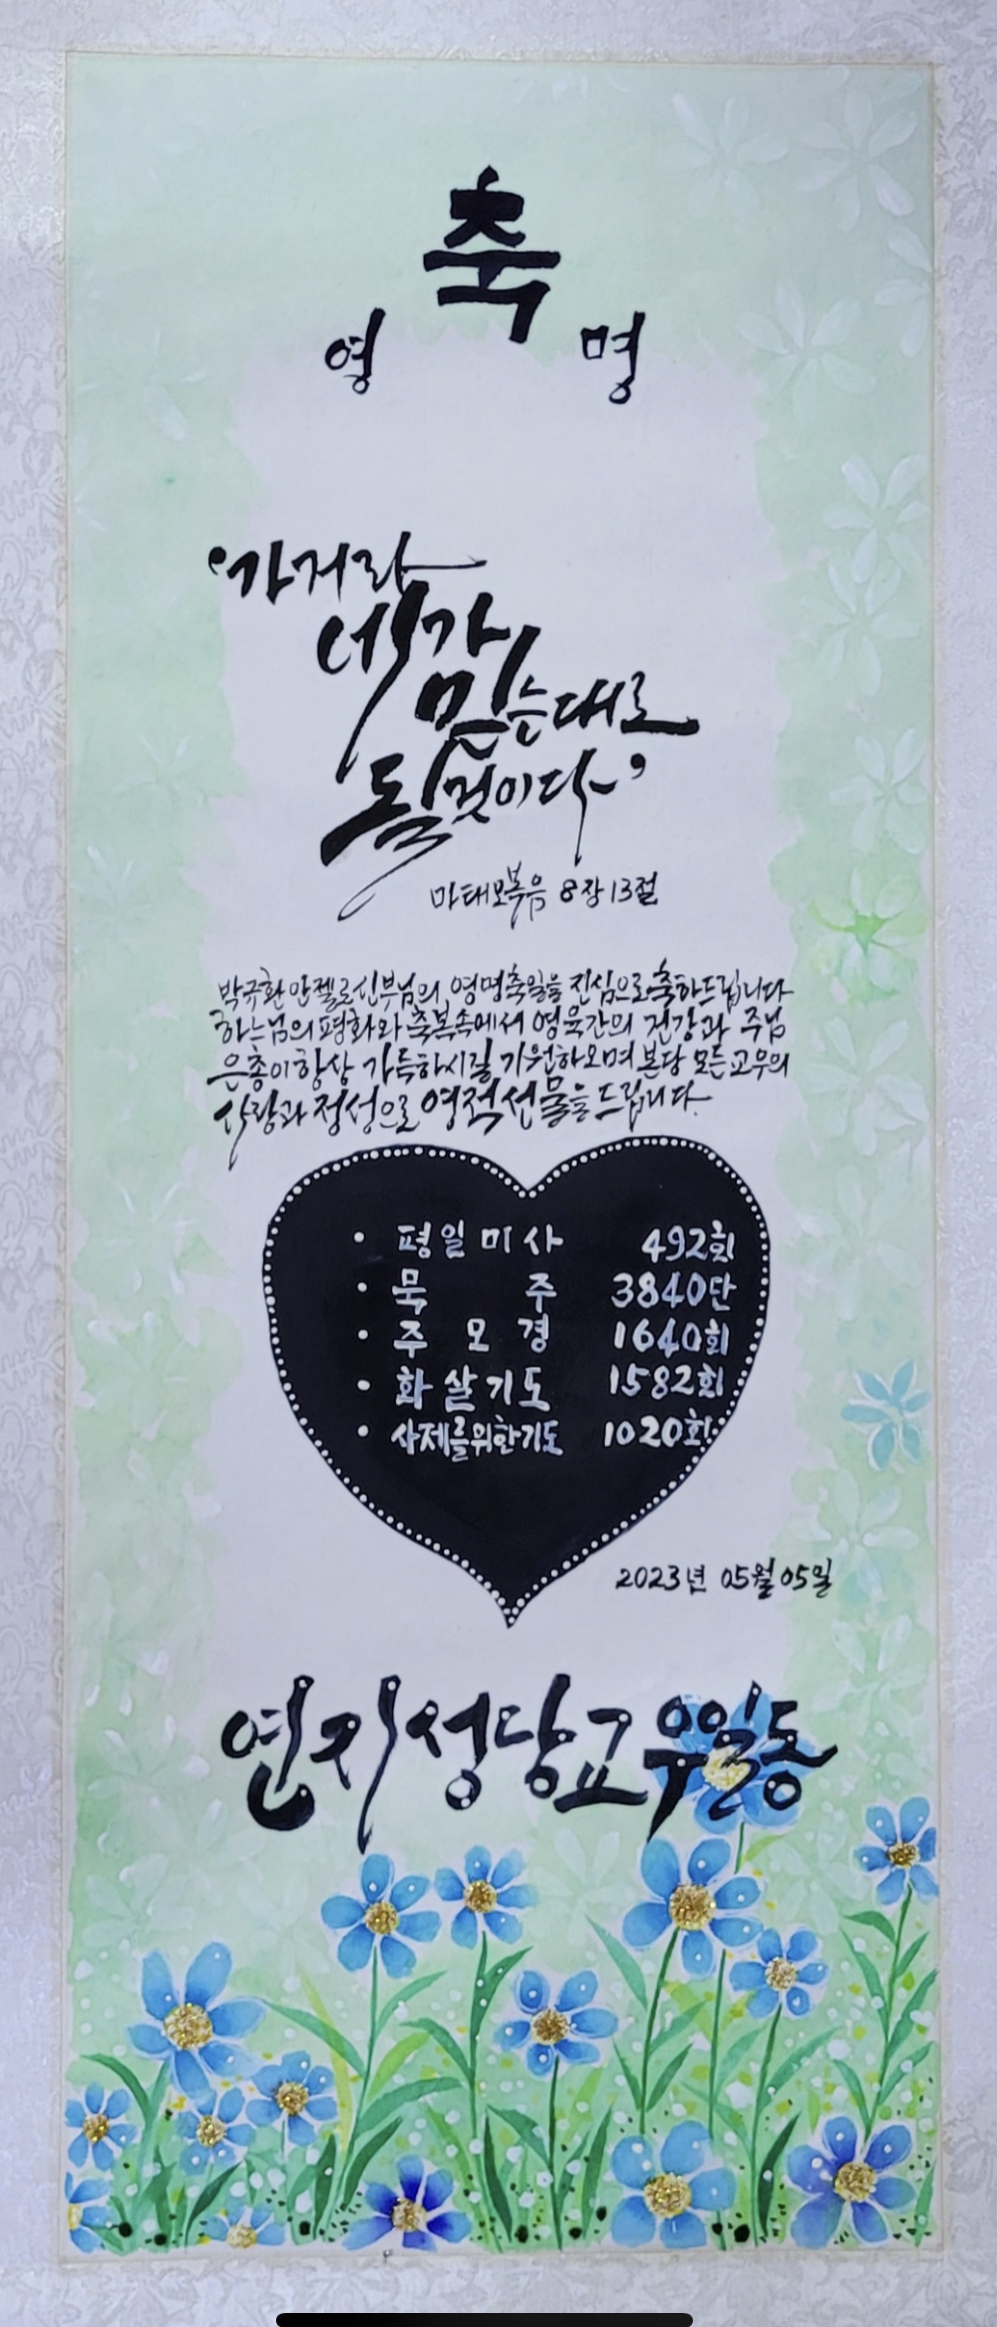 축
영 명
'가거라
네가
믿는대로
될것이다'
마태오복음 8장 13절
박규환 안젤로신부님의 영명축일을 진심으로 축하드립니다
하느님의 평화와 축복속에서 영육간의 건강과 주님
은총이 항상 가득하시길 기원하오며 본당 모든 교우의
사랑과 정성으로 영적선물을 드립니다.
· 평일미사 492회
· 묵주 3840단
· 주모경 1640회
· 화살기도 1582회
· 사제를위한기도 1020회
2023년 05월 05일
연지성당교우일동